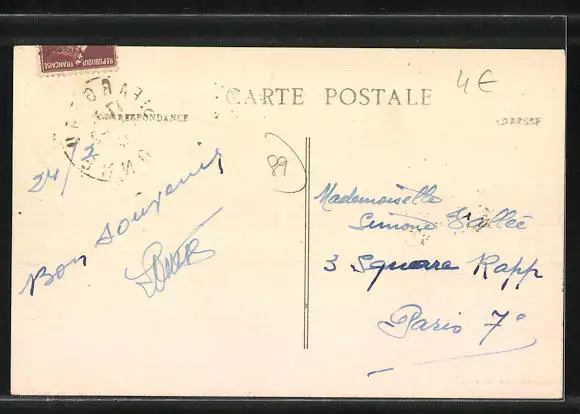 REPUBLIQUE FRANÇAISE
CARTE POSTALE
CORRESPONDANCE
ADRESSE
4€
89
24/2
Bon souvenir
Mademoiselle
Simone Vallée
3 Square Rapp
Paris 7e